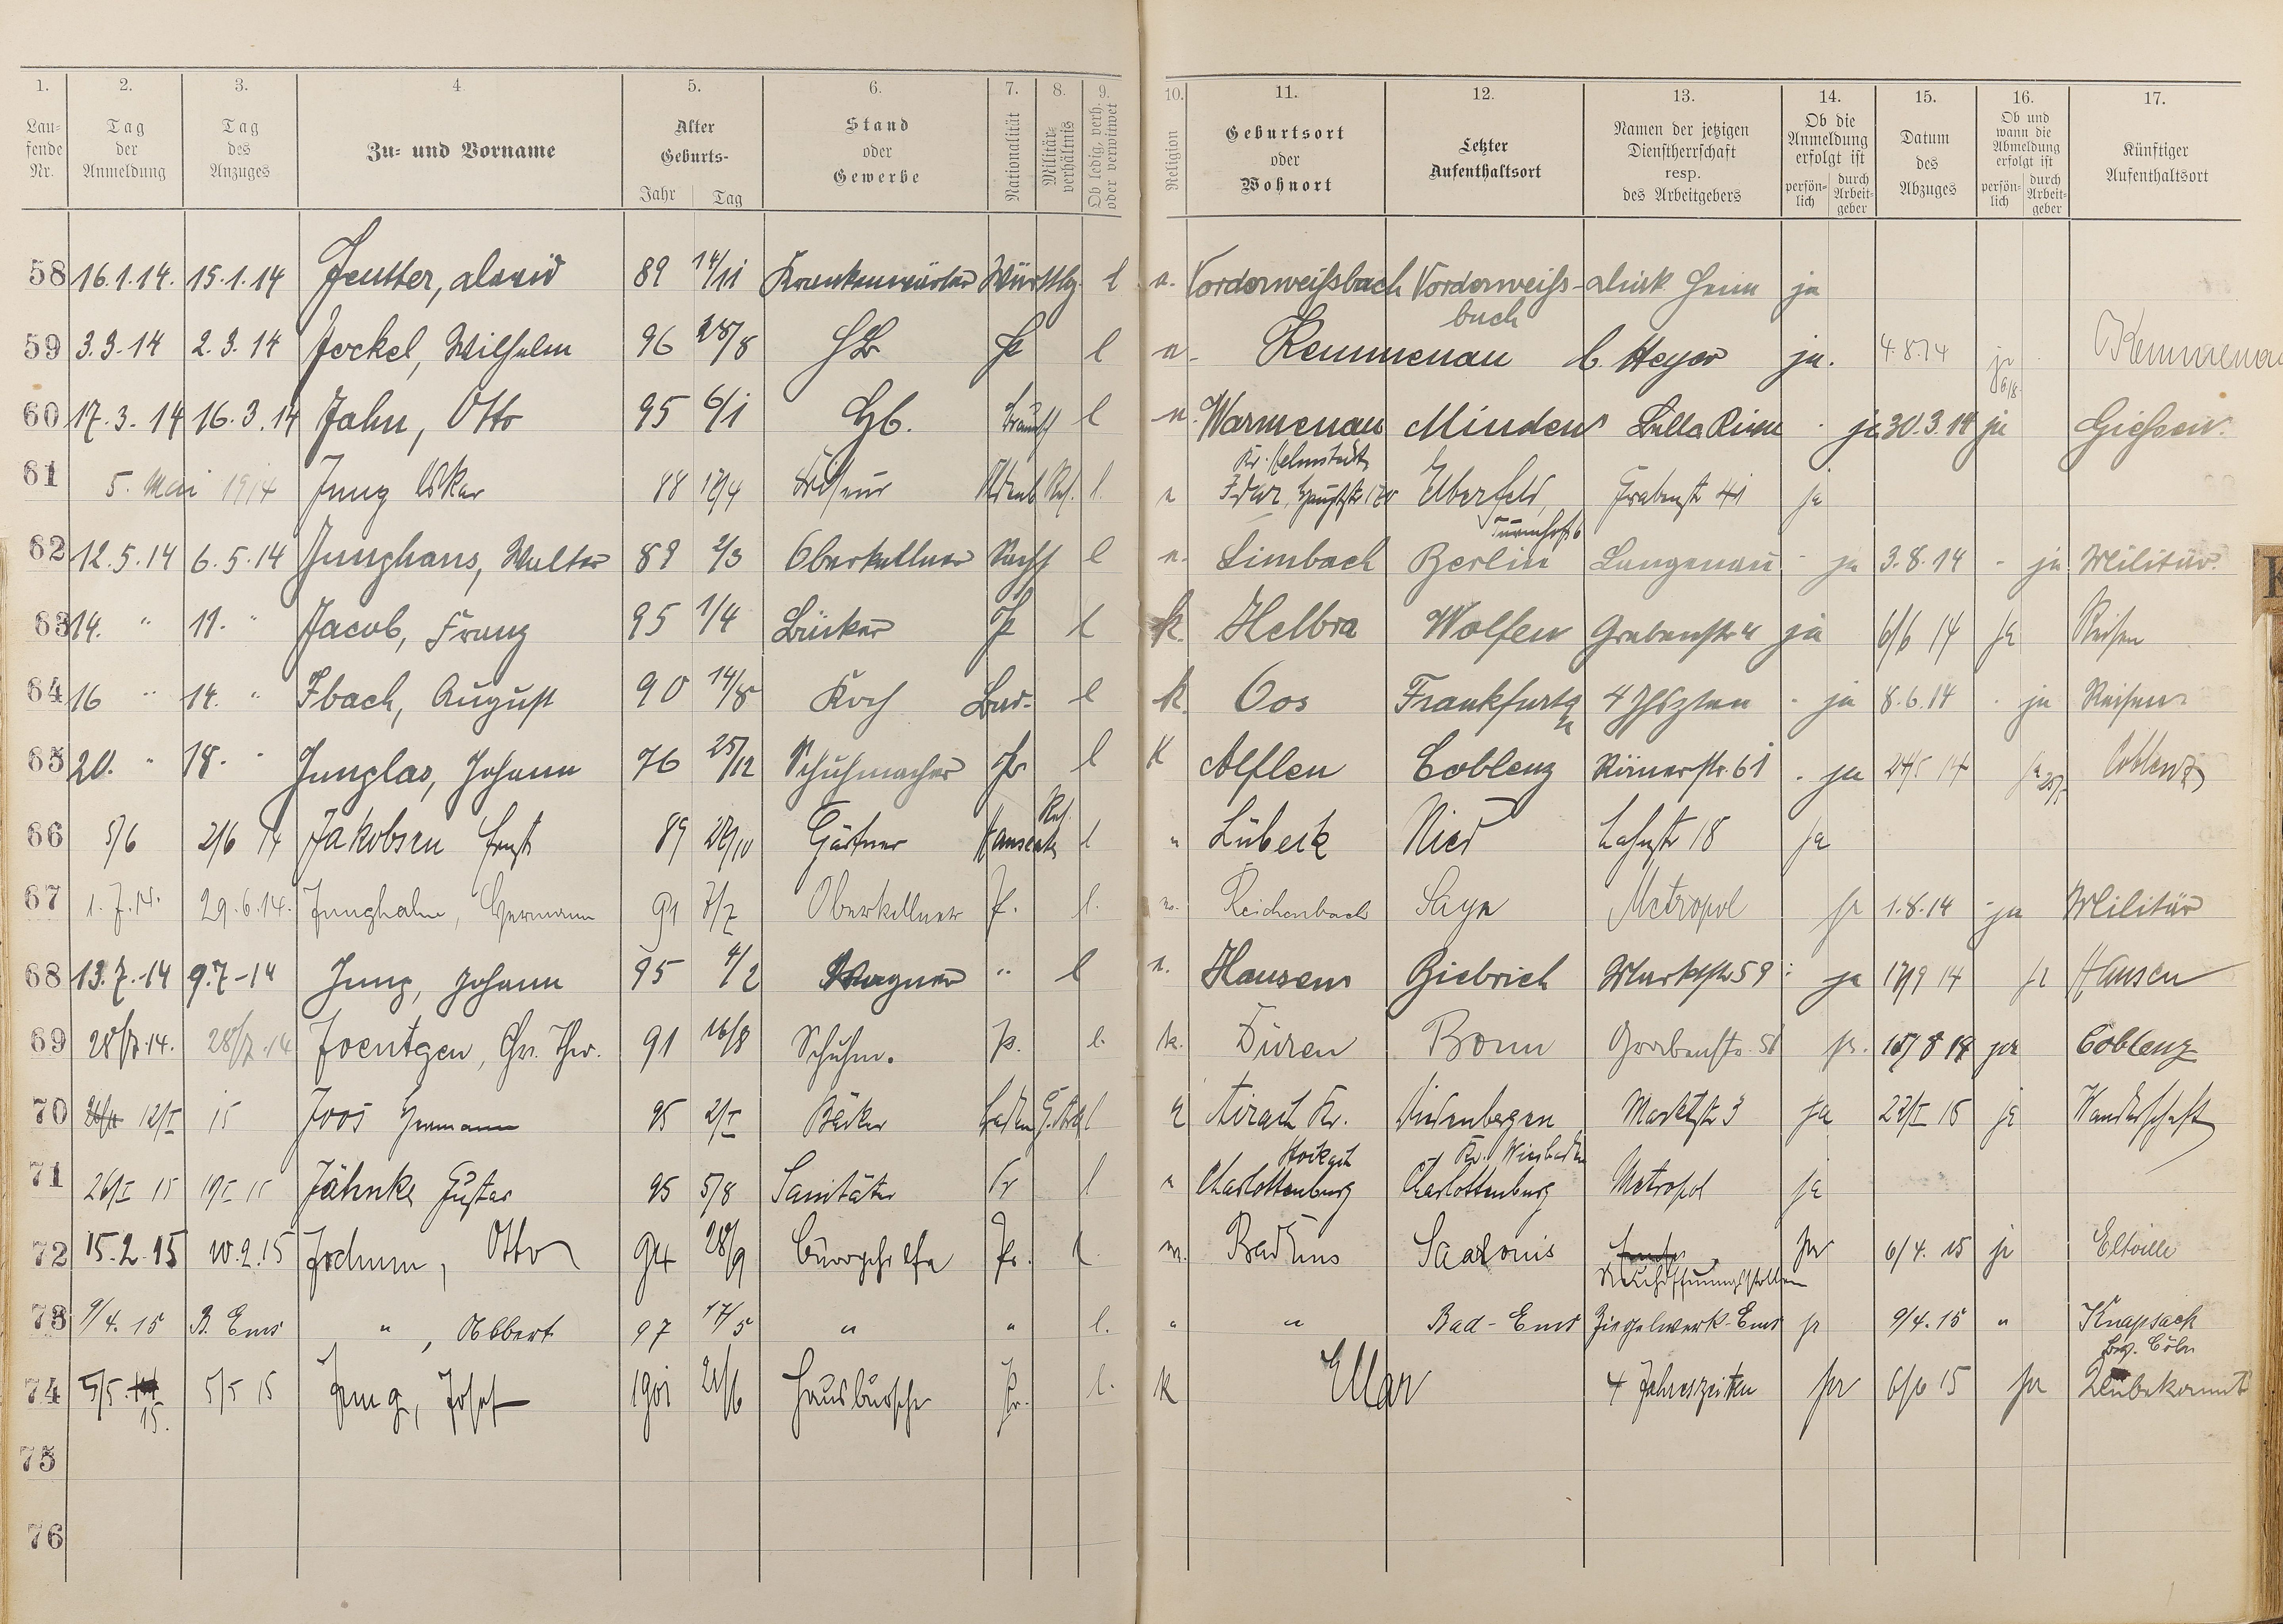 1. 2. 3. 4 5. 6. 7. 8. 9. 10. 11. 12. 13. 14. 15. 16. 17.
Lau-
fende
Nr.
Tag
der
Anmeldung
Tag
des
Anzuges
Zu- und Vorname
Alter
Geburts-
Jahr Tag
Stand
oder
Gewerbe
Nationalität
Militär-
verhältnis
Ob ledig, verh.
oder verwitwet
Religion
Geburtsort
oder
Wohnort
Letzter
Aufenthaltsort
Namen der jetzigen
Dienstherrschaft
resp.
des Arbeitgebers
Ob die
Anmeldung
erfolgt ist
persön-
lich
durch
Arbeit-
geber
Datum
des
Abzuges
Ob und
wann die
Abmeldung
erfolgt ist
persön-
lich
durch
Arbeit-
geber
Künftiger
Aufenthaltsort
58 16.1.14. 15.1.14 Jeutter, David 89 14/11 Krankenwärter Württbg. l e. Vorderweißbach Vorderweiß- ja
bach
59 3.3.14 2.3.14 Jockel, Wilhelm 96 28/8 l e. Kemmenau C. Meyer ja. 4.8.14 ja Kemmenau
6/8.
60 17.3.14 16.3.14 Jahn, Otto 95 6/1 l e. Warmenau Minden ja 30.3.14 ja Gießen.
Kr. Helmstedt
61 5. Mai 1914 Jung Oskar 88 17/4 Friseur Oldenb Res. l. e Idar, Hauptstr. Elberfeld, Grabenstr 41 ja
62 12.5.14 6.5.14 Junghans, Walter 89 2/3 Oberkellner l e. Limbach Berlin Langenau - ja 3.8.14 - ja Militär.
63 14. " 11. " Jacob, Franz 95 1/4 Bäcker P l k. Helbra Wolfen Grabenstr ja 6/6 14 ja Reisen
64 16 " 14. " Ibach, August 90 14/8 Koch Bad. l k. Oos Frankfurt a - ja 8.6.14 - ja Reisen
65 20. " 18. " Junglas, Johann 76 25/12 Schuhmacher Pr l K Alflen Coblenz Römerstr. 61 . ja 24/5 14 ja Coblenz
66 5/6 2/6 14 Jakobsen Ernst 89 28/10 Gärtner Hanseate Res. l " Lübeck Nied Lahnstr 18 ja
67 1.7.14. 29.6.14. Junghahn, Hermann 91 7/7 Oberkellner P. l. ev. Reichenbach Sayn Metropol ja 1.8.14 - ja Militär
68 13.7.-14 9.7-14 Jung, Johann 95 4/2 Wagner " l e. Hausen Biebrich Marktstr. 59 : ja 17/9 14 ja Hausen
69 28/7.14. 28/7.14 Joentgen, Chr. Thr. 91 16/8 Schuhm. P. l. k. Düren Bonn Grabenstr. 51 ja. 15/8 14 ja Coblenz
70 12/I 15 Joos Hermann 95 2/I Bäcker Baden l Airach Kr. Nordenstadt Marktstr 3 ja 22/I 15 ja Wanderschaft
Stokach Kr. Wiesbaden
71 26/I 15 19/I 15 Jähnke Gustav 95 5/8 Sanitäter Pr l e Charlottenburg Charlottenburg Metropol ja
72 15.2.15 10.2.15 Jochum, Otto 94 28/9 Bürogehilfe Pr. l. ev. Bad Ems Saarlouis ja 6/4. 15 ja Eltville
Neuhoffnungsstollen
73 9/4. 15 B. Ems ", Robert 97 17/5 " " l. " " Bad-Ems Ziegelwerk-Ems ja 9/4.15 " Knapsack
Bez. Cöln
74 5/5. 5/5 15 Jung, Josef 1901 21/6 Hausbursche Pr. l. k Ellar 4 Jahreszeiten ja 6/6 15 ja Unbekannt
15.
75
76